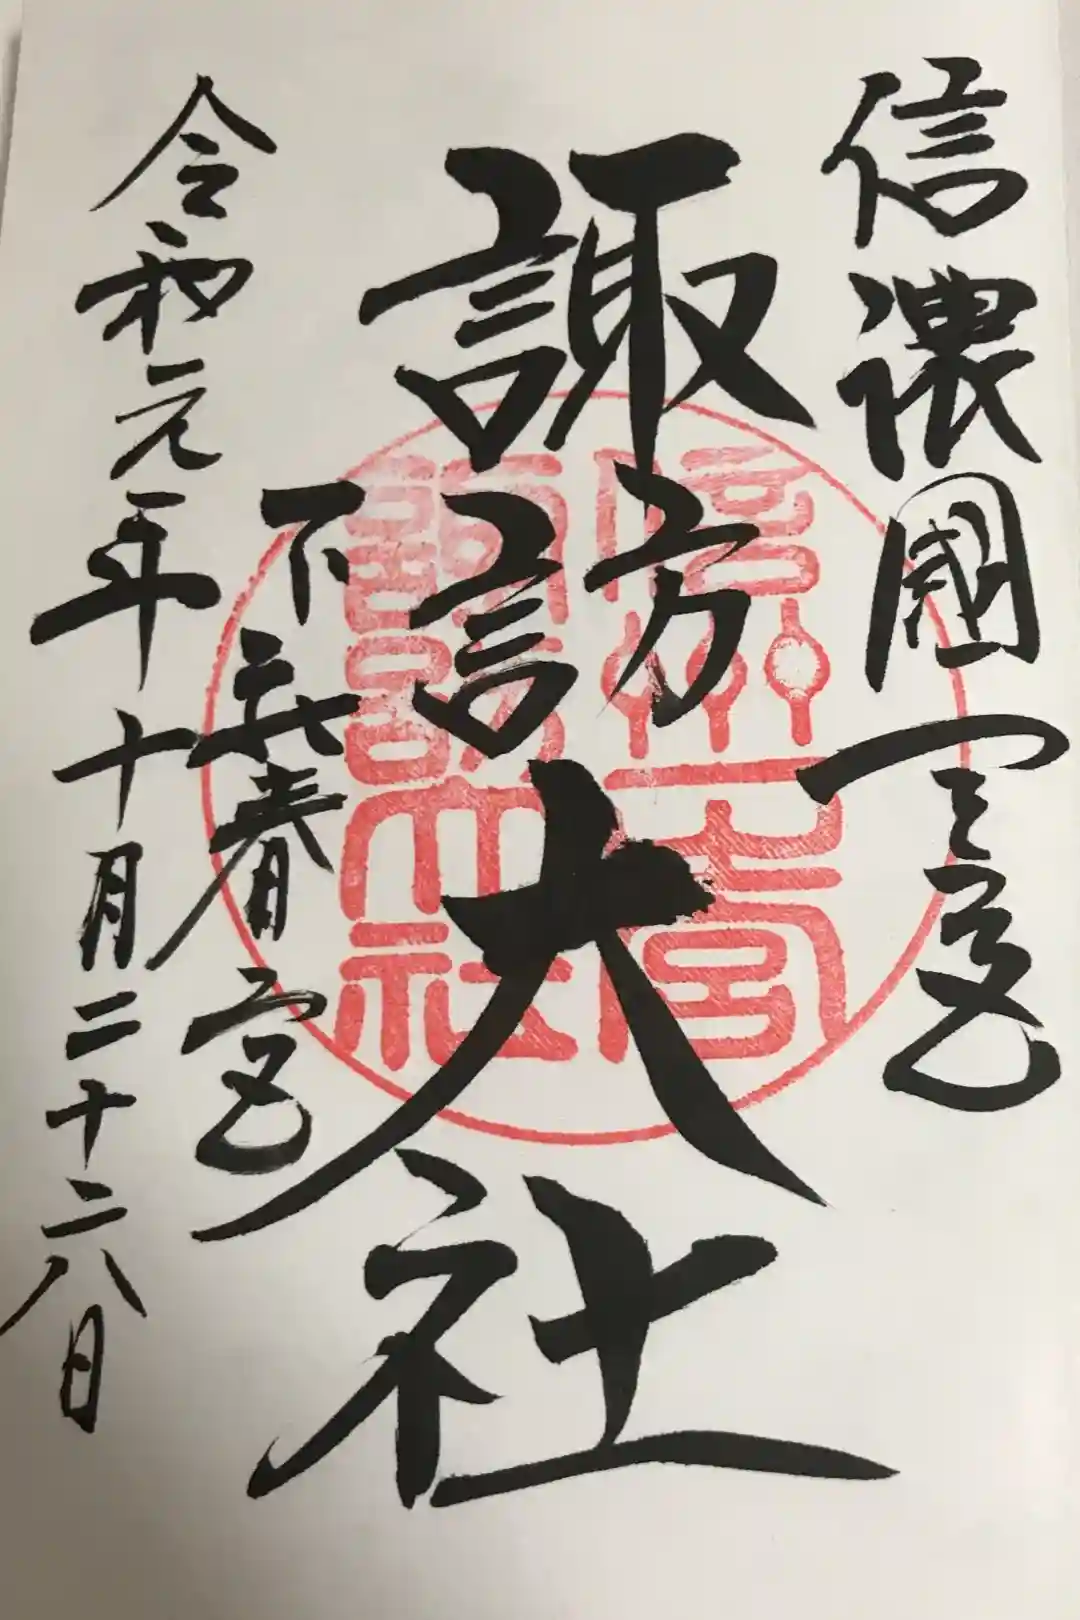 信濃國一之宮
諏訪大社
下社春宮
令和元年十月二十六日
信州一之宮
諏訪大社